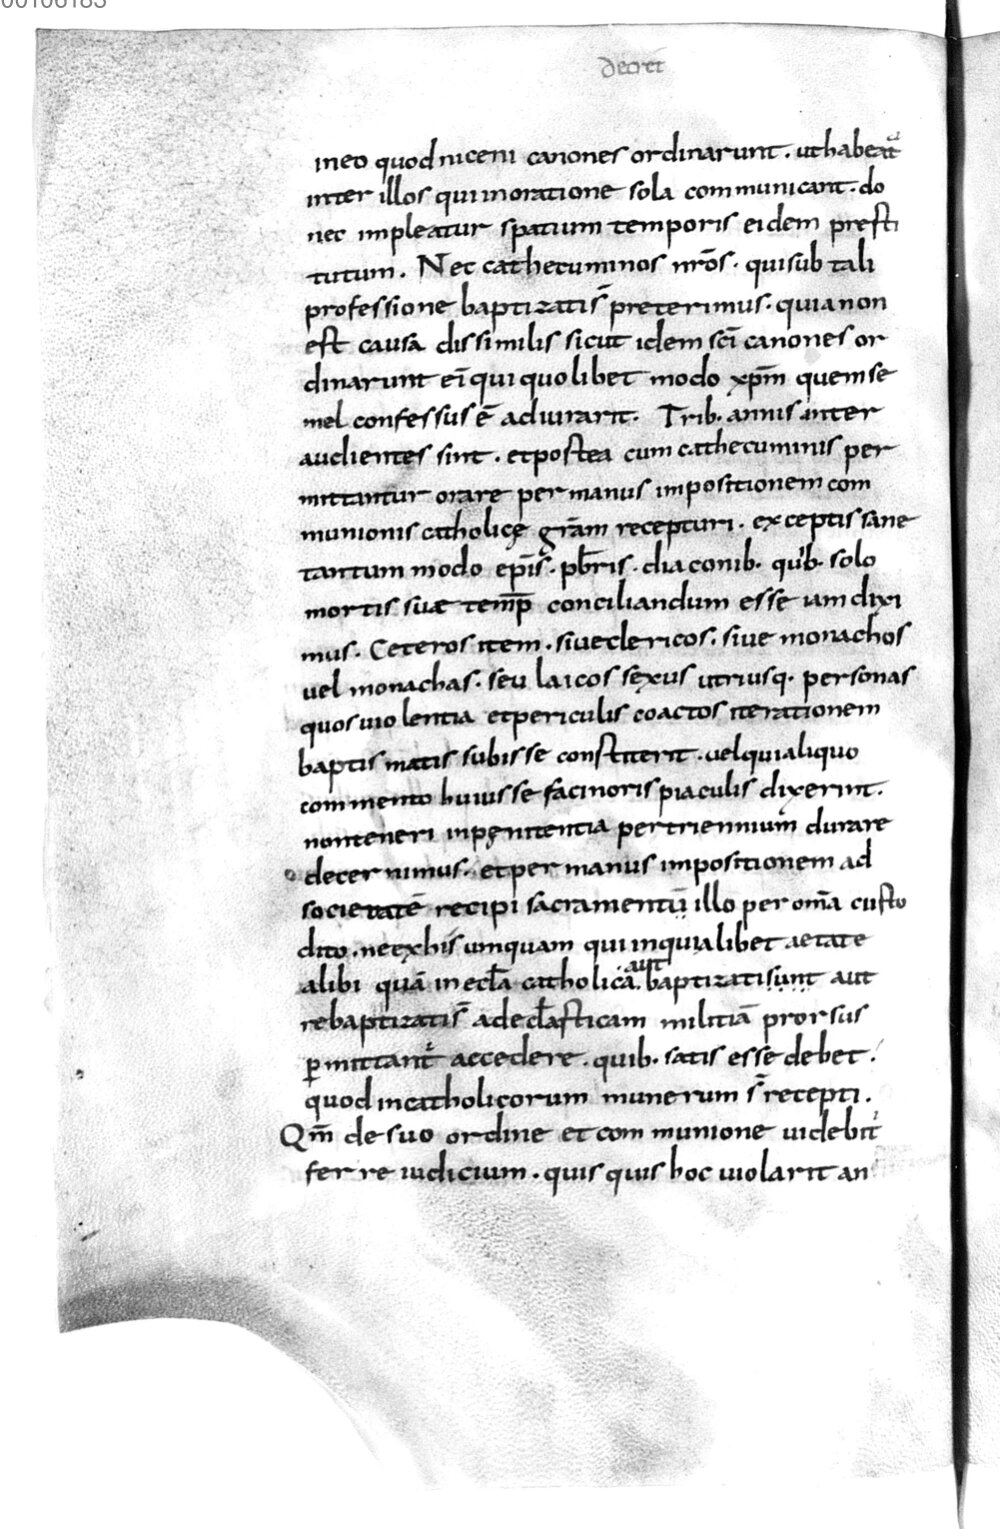 00106183
decret
in eo quod niceni canones ordinarunt. ut habeat᷑
inter illos qui in oratione sola communicant. do
nec impleatur spatium temporis eidem presti
tutum. Nec cathecuminos nr̄os. qui sub tali
professione baptizati s̄ preterimus. quia non
est causa dissimilis sicut idem sc̄i canones or
dinarunt ei᷒ qui quolibet modo xp̄m quem se
mel confessus ē adiurarit. Trib. annis inter
audientes sint. et postea cum cathecuminis per
mittantur orare per manus impositionem com
munionis catholicę gr̄am recepturi. exceptis sane
tantum modo ep̄is. pb̄ris. diaconib. quib. solo
mortis suae temp̄ conciliandum esse iam dixi
mus. Ceteros item. siue clericos. siue monachos
uel monachas. seu laicos sexus utriusq. personas
quos uiolentia et periculis coactos iterationem
baptismatis subisse constiterit. uel qui aliquo
commento huiusse facinoris piaculis dixerint.
non teneri in pęnitentia per triennium durare
decernimus. et per manus impositionem ad
societatē recipi sacramentū illo per om̄a custo
dito. ne ex his umquam qui in qualibet aetate
alibi quā in eccl̄a catholica. aut baptizati sunt aut
rebaptizati s̄ ad eccl̄asticam militiā prorsus
ꝑmittant᷑ accedere. quib. satis esse debet.
quod in catholicorum munerum s̄ recepti.
Qm̄ de suo ordine et communione uidebit᷑
ferre iudicium. quisquis hoc uiolarit an